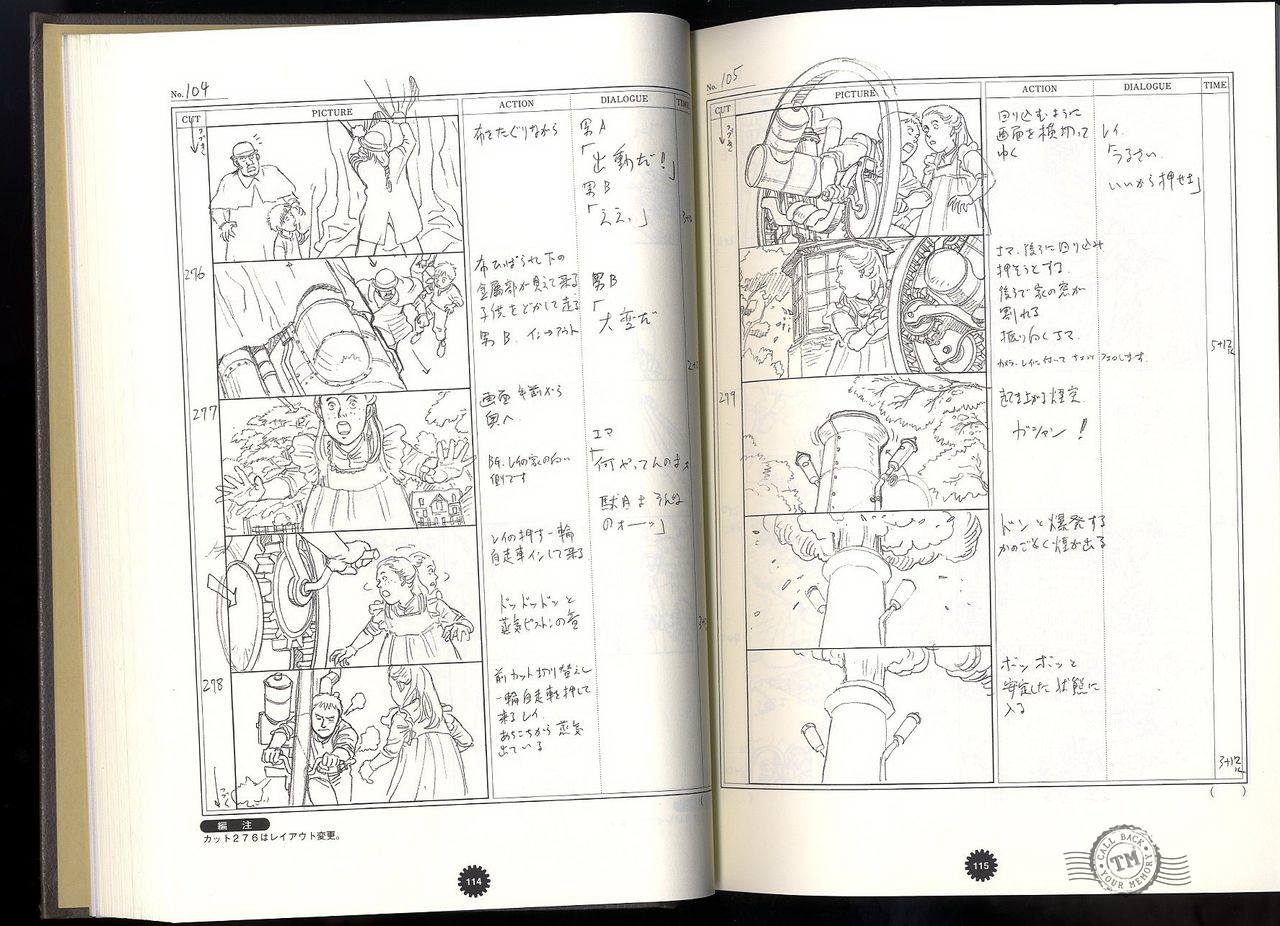 No. 104
CUT
PICTURE
ACTION
DIALOGUE
TIME
つづき
布をたぐりながら
男A
「出動だ!」
男B
「ええ。」
276
布ひっぱられ下の
金属部が見えて来る
子供をどかして走る
男B. イン→アウト
男B
「大変だ
277
画面手前から
奥へ
BG. レイの家の向い
側です
エマ
「何やってんのよォ
駄目よ そんな
のォーッ」
レイの押す一輪
自走車インして来る
ドッドッドッと
蒸気ピストンの音
278
前カット切り替えし
一輪自走車を押して
来るレイ
あちこちから蒸気
出ている
編 注
カット276はレイアウト変更。
114
No. 105
CUT
PICTURE
ACTION
DIALOGUE
TIME
つづき
回り込むように
画面を横切って
ゆく
レイ
「うるさい
いいから押せよ」
エマ、後ろに回り込み
押そうとする
後ろで家の窓が
割れる
振り向くエマ
5+12
279
起き上がる煙突
ガシャン!
ドンと爆発する
かのごとく煙が出る
ボッボッと
安定した状態に
入る
3+12
( )
115
CALL BACK
TM
YOUR MEMORY